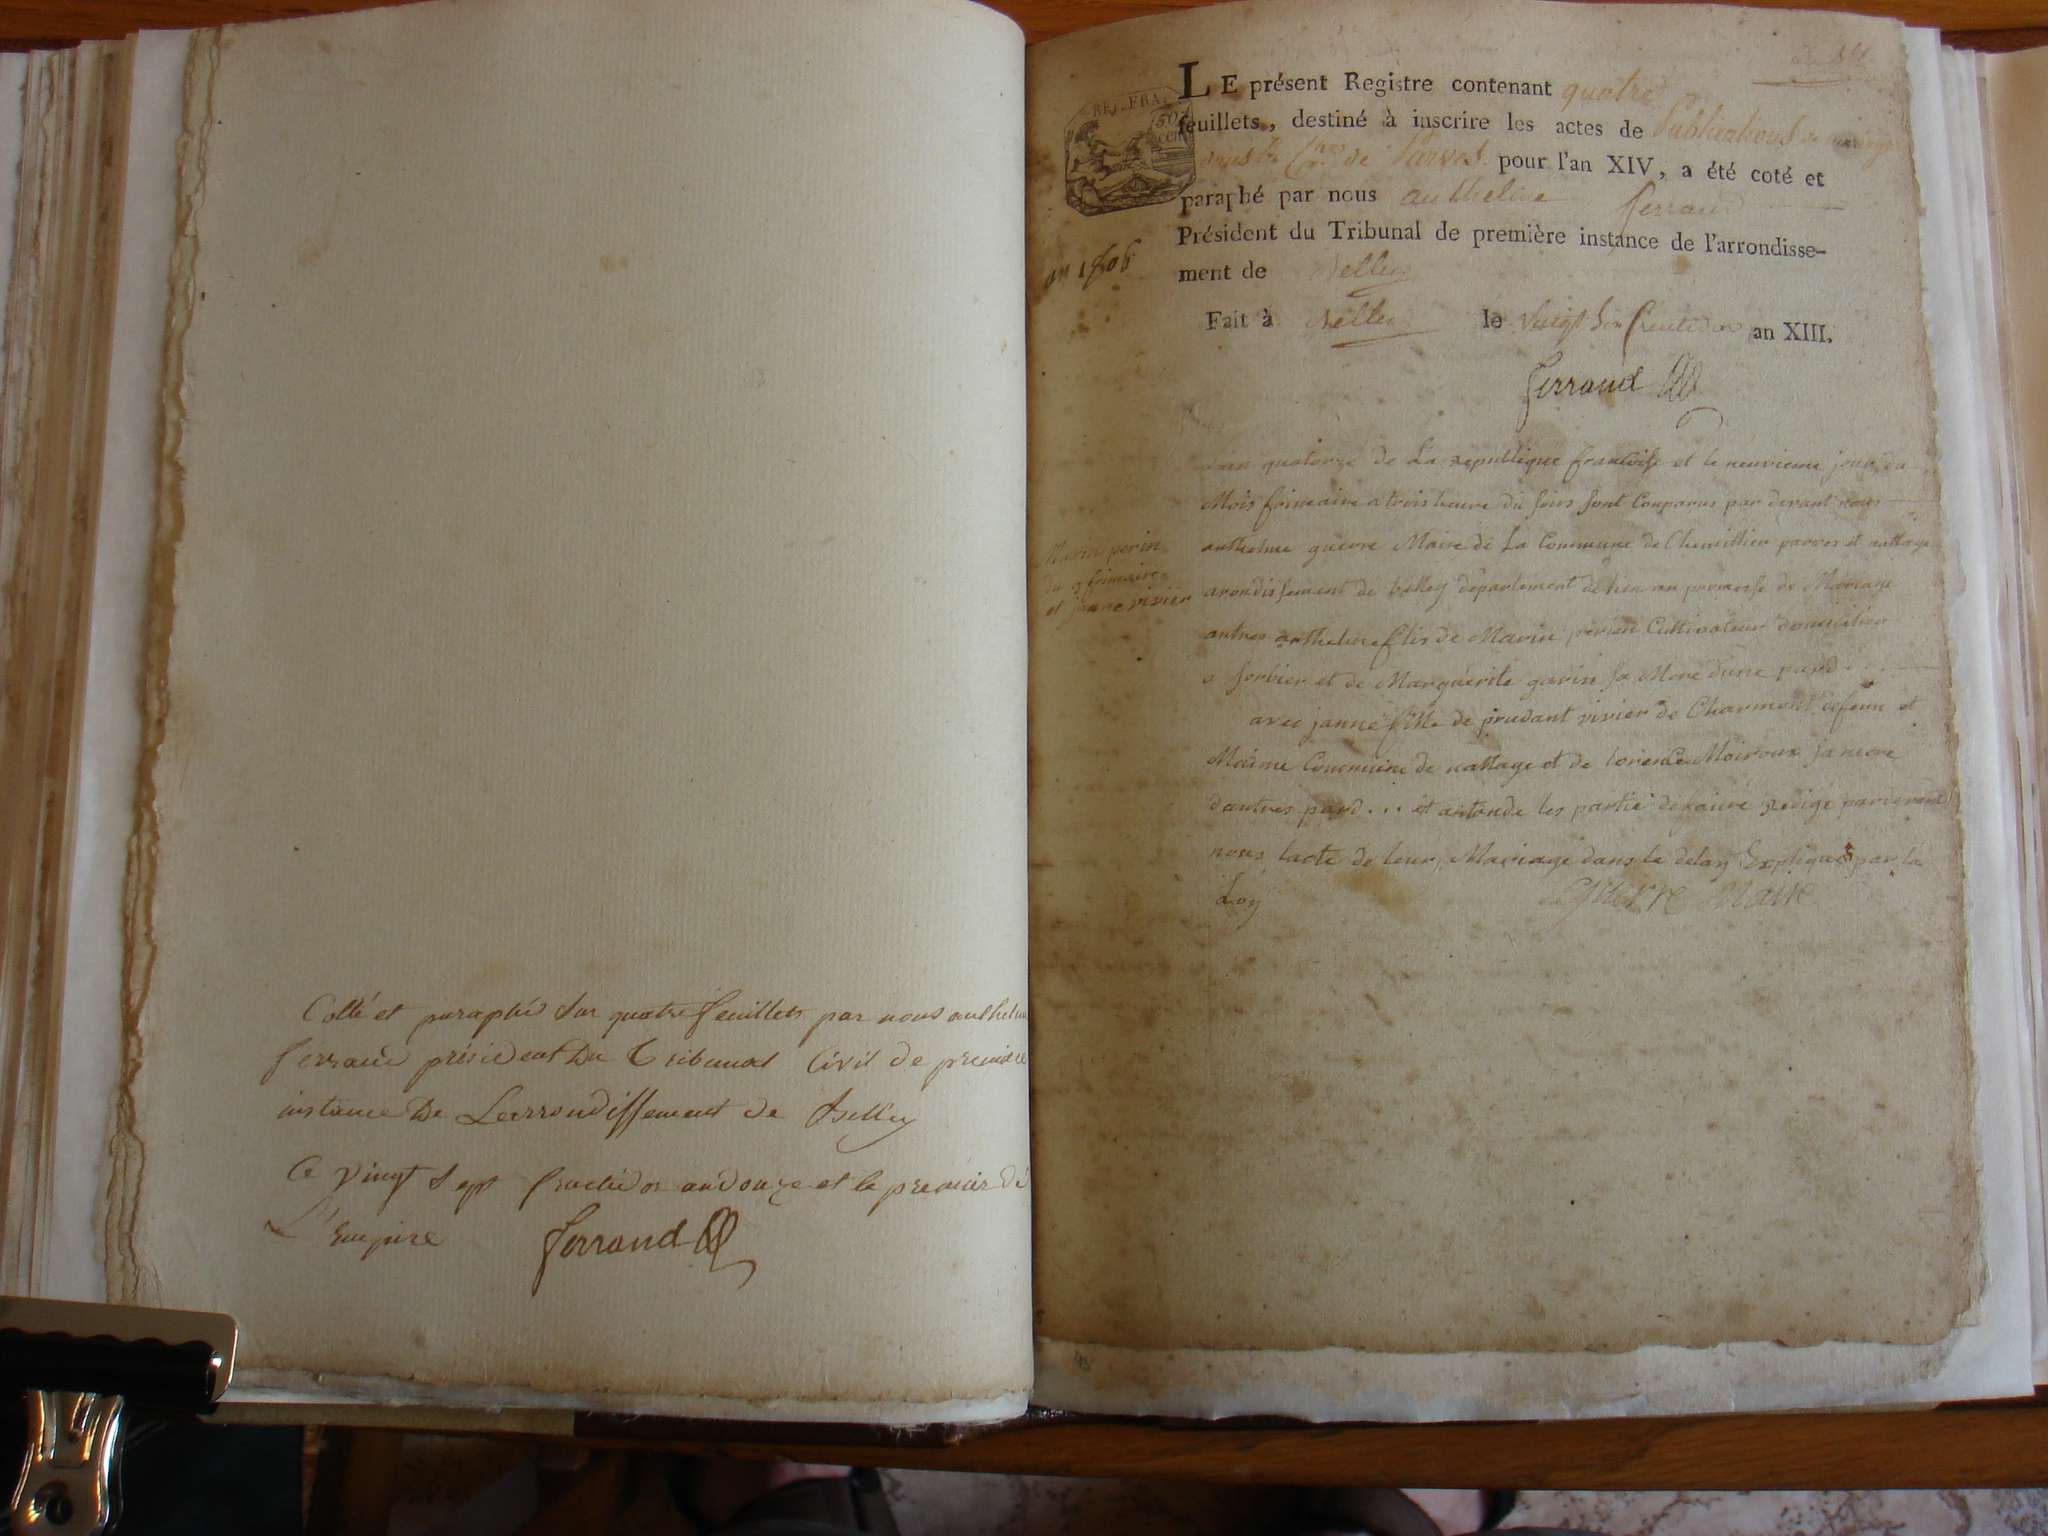 Cotté et paraphé sur quatre feuillets par nous anthelme
ferrand président du Tribunal Civil de première
instance De Larrondissement de Belley
Ce vingt sept fructidor an douze et le premier de
L'Empire ferrand
REP. FRA.
50
cen
an 1806
LE présent Registre contenant quatre
feuillets, destiné à inscrire les actes de Publications de mariage
de Parves pour l'an XIV, a été coté et
paraphé par nous anthelme ferrand
Président du Tribunal de première instance de l'arrondisse-
ment de Belley
Fait à Belley le vingt fructidor an XIII.
ferrand
Marin perin
du 9 frimaire
et janne vivier
Lan quatorze de La republique francoise et le neuvieme jour du
Mois frimaire a trois heure du soir sont Comparus par devant nous
anthelme guerre Maire de La Commune de parves et nattage
arondissement de belley departement de promesse de Mariage
antres anthelme filis de Marin perin Cultivateur domicilier
a sorbier et de Marguerite garin sa Mere dune pard
avec janne fille de prudant vivier de Charmont defeun et
Maime Commune de nattage et de Moiroux sa mere
dautres pard... et les partie redige pardevant
nous lacte de leur Mariage dans le delay Expliques par la
Loy guerre Maire